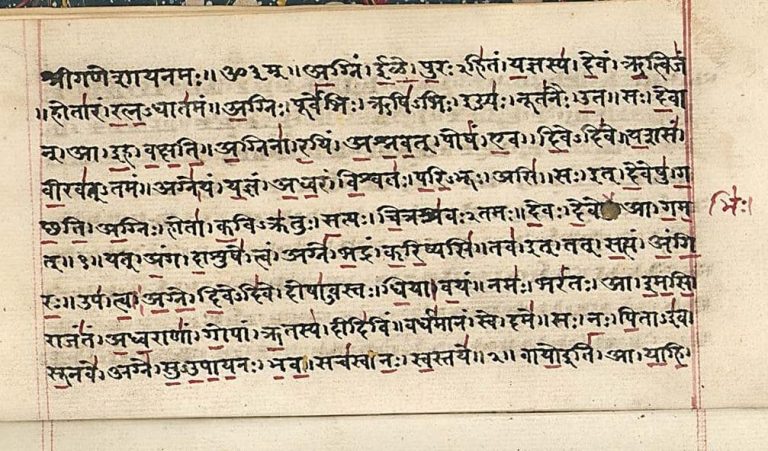 श्रीगणेशायनमः॥ ॐ३म्॥ अग्निं। ईळे। पुरःऽहितं। यज्ञस्य। देवं। ऋत्विजं
॥होतारं। रत्नऽधातमं॥ अग्निः। पूर्वेभिः। ऋषिऽभिः। ईड्यः। नूतनैः। उत॥ सः। देवा
न्। आ। इह। वक्षति॥ अग्निना। रयिं। अश्नवत्। पोषं। एव। दिवेऽदिवे॥ यशसं
वीरवत्ऽतमं॥ अग्ने। यं। यज्ञं। अध्वरं। विश्वतः। परिऽभूः। असि॥ सः। इत्। देवेषु। ग
च्छति। अग्निः। होता। कविऽक्रतुः। सत्यः। चित्रश्रवःऽतमः॥ देवः। देवे आ। गम भिः।
त्॥१॥ यत्। अंग। दाशुषे। त्वं। अग्ने। भद्रं। करिष्यसि॥ तव। इत्। तत्। सत्यं। अंगि
रः॥ उप। त्वा। अग्ने। दिवेऽदिवे। दोषाऽवस्तः। धिया। वयं॥ नमः। भरंतः। आ। इमसि
राजंतं। अध्वराणां। गोपां। ऋतस्य। दीदिविं॥ वर्धमानं। स्वे। दमे॥ सः। नः। पिताऽइव
सूनवे। अग्ने। सुऽउपायनः। भव॥ सचस्व। नः। स्वस्तये॥२॥ वायोइति। आ। याहि।